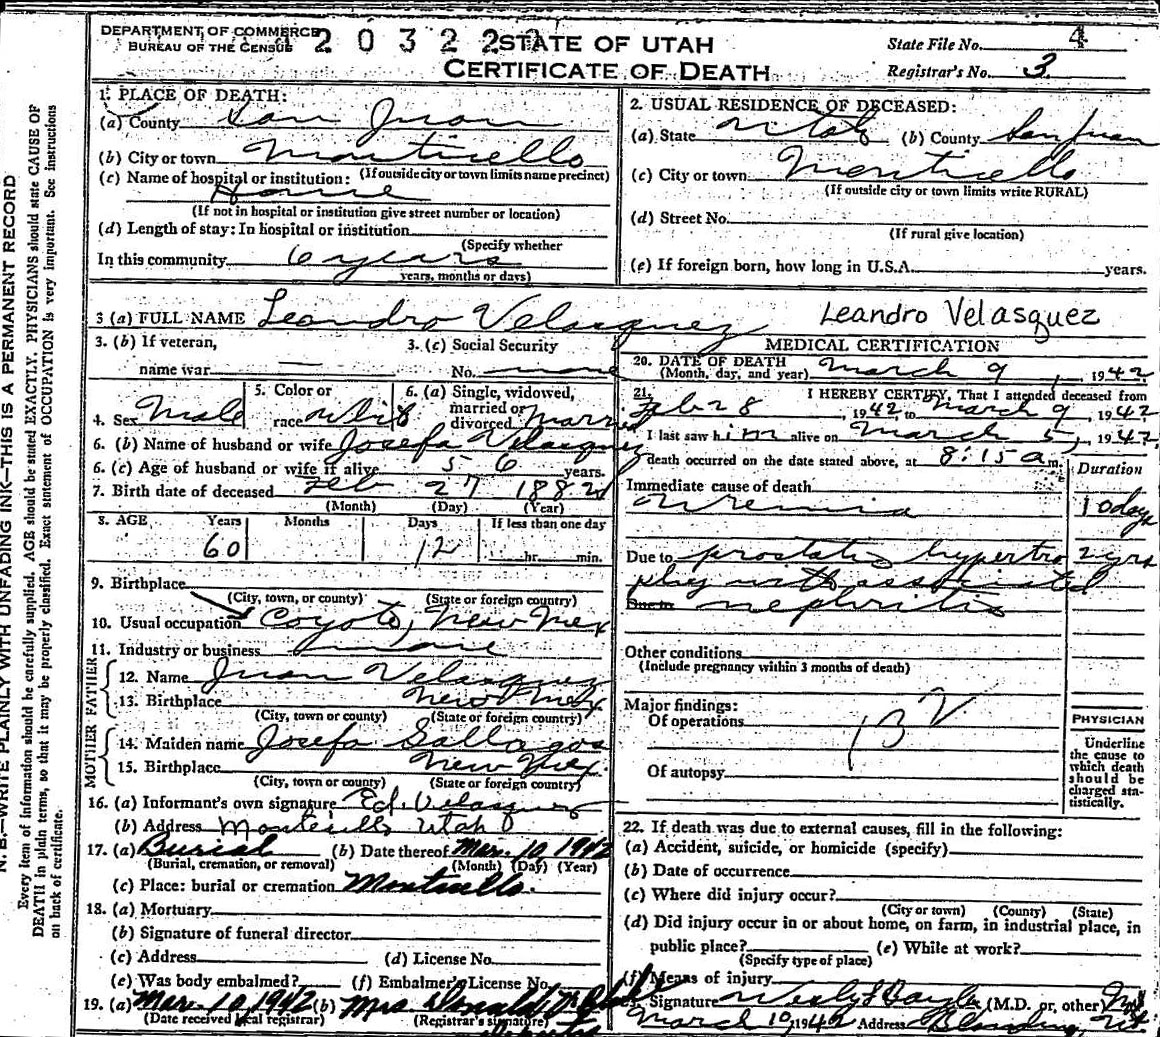 N. B.—WRITE PLAINLY WITH UNFADING INK—THIS IS A PERMANENT RECORD
Every item of information should be carefully supplied. AGE should be stated EXACTLY. PHYSICIANS should state CAUSE OF
DEATH in plain terms, so that it may be properly classified. Exact statement of OCCUPATION is very important. See instructions
on back of certificate.
DEPARTMENT OF COMMERCE
BUREAU OF THE CENSUS
2 0 3 2 2
STATE OF UTAH
CERTIFICATE OF DEATH
State File No. 4
Registrar's No. 3
1. PLACE OF DEATH:
(a) County San Juan
(b) City or town Monticello
(If outside city or town limits name precinct)
(c) Name of hospital or institution:
Home
(If not in hospital or institution give street number or location)
(d) Length of stay: In hospital or institution
(Specify whether
In this community 6 years
years, months or days)
2. USUAL RESIDENCE OF DECEASED:
(a) State Utah (b) County San Juan
(c) City or town Monticello
(If outside city or town limits write RURAL)
(d) Street No.
(If rural give location)
(e) If foreign born, how long in U.S.A. years.
3 (a) FULL NAME Leandro Velasquez
Leandro Velasquez
3. (b) If veteran,
name war —
3. (c) Social Security
No. none
4. Sex Male
5. Color or
race White
6. (a) Single, widowed,
married or
divorced Married
6. (b) Name of husband or wife Josefa Velasquez
6. (c) Age of husband or wife if alive 56 years.
7. Birth date of deceased Feb 27 1882
(Month) (Day) (Year)
8. AGE Years Months Days If less than one day
60 12 hr. min.
9. Birthplace
(City, town, or county) (State or foreign country)
10. Usual occupation Coyote, New Mex
11. Industry or business
FATHER
12. Name Juan Velasquez
13. Birthplace New Mex
(City, town or county) (State or foreign country)
MOTHER
14. Maiden name Josefa Gallagos
15. Birthplace New Mex.
(City, town or county) (State or foreign country)
16. (a) Informant's own signature Ed. Velasquez
(b) Address Monticello Utah
17. (a) Burial (b) Date thereof Mar. 10 1942
(Burial, cremation, or removal) (Month) (Day) (Year)
(c) Place: burial or cremation Monticello.
18. (a) Mortuary
(b) Signature of funeral director
(c) Address (d) License No.
(e) Was body embalmed? (f) Embalmer's License No.
19. (a) Mar. 10, 1942 (b) Mrs Donald
(Date received local registrar) (Registrar's signature)
MEDICAL CERTIFICATION
20. DATE OF DEATH
(Month, day, and year) March 9, 1942
21. I HEREBY CERTIFY, That I attended deceased from
Feb 28, 1942 to March 9, 1942
I last saw him alive on March 5, 1942
death occurred on the date stated above, at 8:15 a m.
Duration
Immediate cause of death
Uremia 10 days
Due to prostatic hypertro 2 yrs
phy with associated
Due to nephritis
Other conditions
(Include pregnancy within 3 months of death)
Major findings:
Of operations
Of autopsy
PHYSICIAN
Underline
the cause to
which death
should be
charged sta-
tistically.
22. If death was due to external causes, fill in the following:
(a) Accident, suicide, or homicide (specify)
(b) Date of occurrence
(c) Where did injury occur?
(City or town) (County) (State)
(d) Did injury occur in or about home, on farm, in industrial place, in
public place? (e) While at work?
(Specify type of place)
(f) Means of injury
23. Signature (M.D. or other)
March 10, 1942 Address Blanding, Ut.